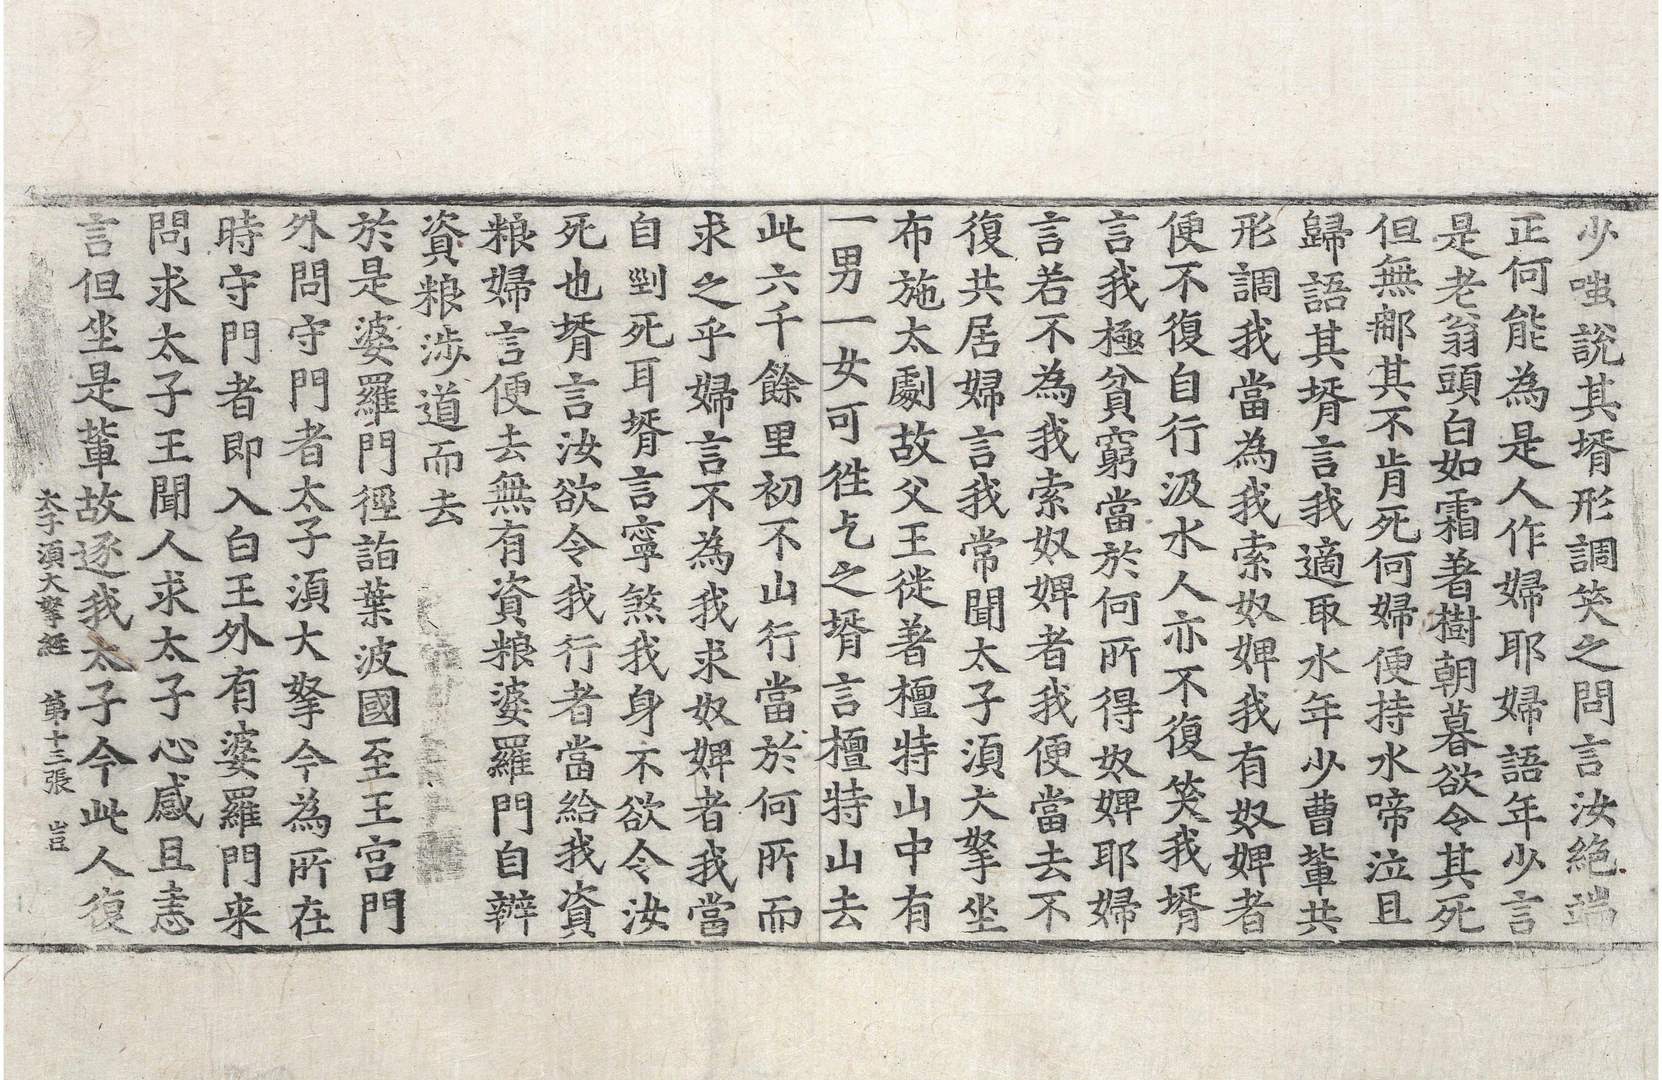 少嗤說其壻形調笑之問言汝絶端
正何能為是人作婦耶婦語年少言
是老翁頭白如霜著樹朝暮欲令其死
但無鄉其不肯死何婦便持水啼泣且
歸語其壻言我適取水年少曹輩共
形調我當為我索奴婢我有奴婢者
便不復自行汲水人亦不復笑我壻
言我極貧窮當於何所得奴婢耶婦
言若不為我索奴婢者我便當去不
復共居婦言我常聞太子湏大拏坐
布施太劇故父王徙著檀特山中有
一男一女可徃乞之壻言檀特山去
此六千餘里初不山行當於何所而
求之乎婦言不為我求奴婢者我當
自剄死耳壻言寧煞我身不欲令汝
死也壻言汝欲令我行者當給我資
粮婦言便去無有資粮婆羅門自辦
資粮涉道而去
於是婆羅門徑詣葉波國至王宮門
外問守門者太子湏大拏今為所在
時守門者即入白王外有婆羅門来
問求太子王聞人求太子心感且恚
言但坐是輩故逐我太子今此人復
太子湏大拏經 第十三張 豈